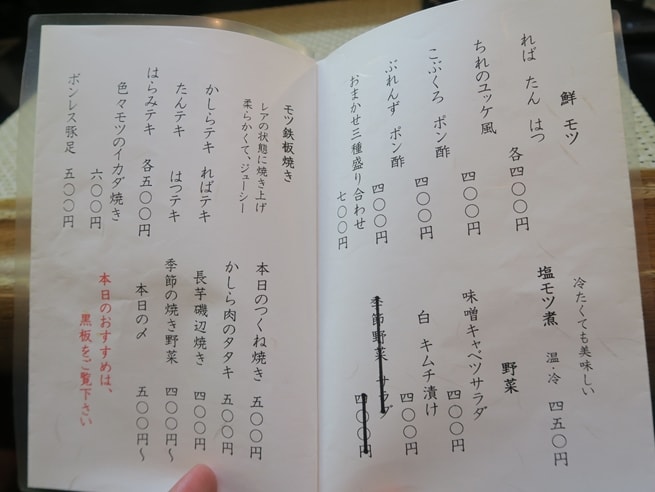 鮮 モツ
れば たん はつ 各四〇〇円
ちれのユッケ風 四〇〇円
こぶくろ ポン酢 四〇〇円
ぶれんず ポン酢 四〇〇円
おまかせ三種盛り合わせ 七〇〇円
冷たくても美味しい
塩モツ煮 温・冷 四五〇円
野菜
味噌キャベツサラダ 四〇〇円
白 キムチ漬け 四〇〇円
季節野菜 サラダ 四〇〇円
モツ鉄板焼き
レアの状態に焼き上げ
柔らかくて、ジューシー
かしらテキ ればテキ
たんテキ はつテキ
はらみテキ 各五〇〇円
色々モツのイカダ焼き 六〇〇円
ボンレス豚足 五〇〇円
本日のつくね焼き 五〇〇円
かしら肉のタタキ 五〇〇円
長芋磯辺焼き 四〇〇円
季節の焼き野菜 四〇〇円〜
本日の〆 五〇〇円〜
本日のおすすめは、
黒板をご覧下さい